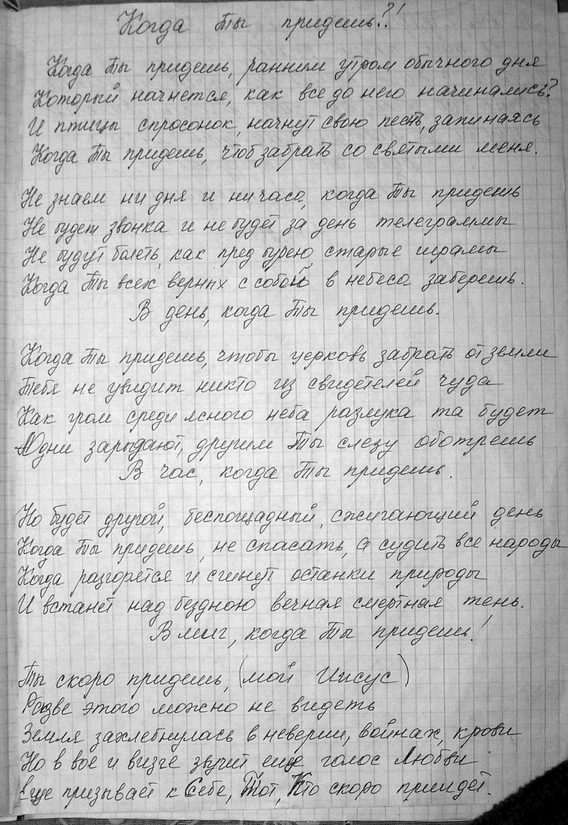 Когда Ты придешь?!
Когда Ты придешь, ранним утром обычного дня
Который начнется, как все до него начинались?
И птицы спросонок, начнут свою песть, запинаясь
Когда Ты придешь, чтоб забрать со святыми меня.
Не знаем ни дня и ни часа, когда Ты придешь
Не будет звонка и не будет за день телеграммы
Не будут болеть, как пред бурею старые шрамы
Когда Ты всех верных с собой в небеса заберешь.
В день, когда Ты придешь.
Когда Ты придешь, чтобы церковь забрать от земли
Тебя не увидит никто из свидетелей чуда
Как гром среди ясного неба разлука та будет
Одни зарыдают, другим Ты слезу оботрешь
В час, когда Ты придешь.
Но будет другой, беспощадный, сжигающий день
Когда Ты придешь, не спасать, а судить все народы
Когда разгорятся и сгинут останки природы
И встанет над бездною вечная смертная тень.
В миг, когда Ты придешь!
Ты скоро придешь, (мой Иисус)
Разве этого можно не видеть
Земля захлебнулась в неверии, войнах, крови
Но в вое и визге звучит еще голос Любви
Еще призывает к Себе, Тот, Кто скоро приидет.